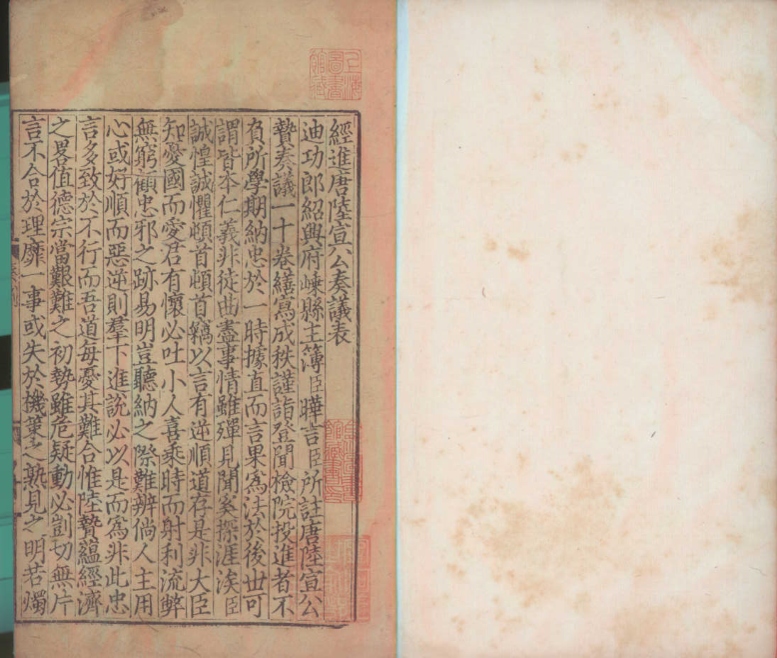 經進唐陸宣公奏議表
迪功郎紹興府嵊縣主簿臣曄言臣所註唐陸宣公
贄奏議一十卷繕寫成秩謹詣登聞檢院投進者不
負所學期納忠於一時據直而言果爲法於後世可
謂皆本仁義非徒曲盡事情雖殫見聞奚探涯涘臣
誠惶誠懼頓首頓首竊以言有逆順道存是非大臣
知憂國而愛君有懷必吐小人喜乘時而射利流弊
無窮顧忠邪之跡易明豈聽納之際難辨倘人主用
心或好順而惡逆則羣下進說必以是而爲非此忠
言多致於不行而吾道每憂其難合惟陸贄蘊經濟
之畧值德宗當艱難之初勢雖危疑動必剴切無片
言不合於理靡一事或失於機策之熟見之明若燭